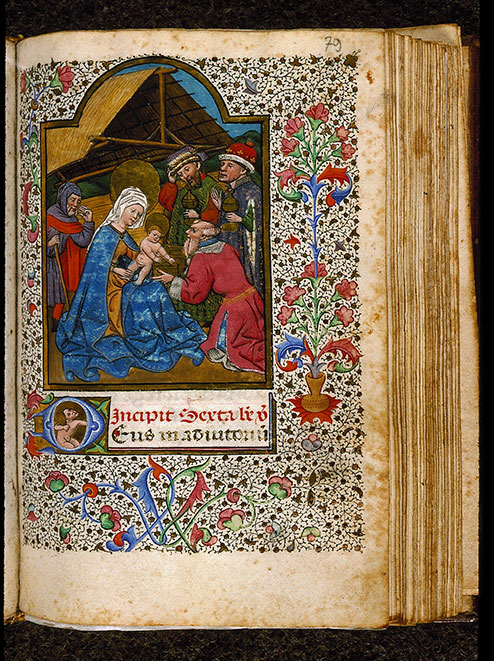 79
Incipit Sexta be v̄
Eus in adiutoriū